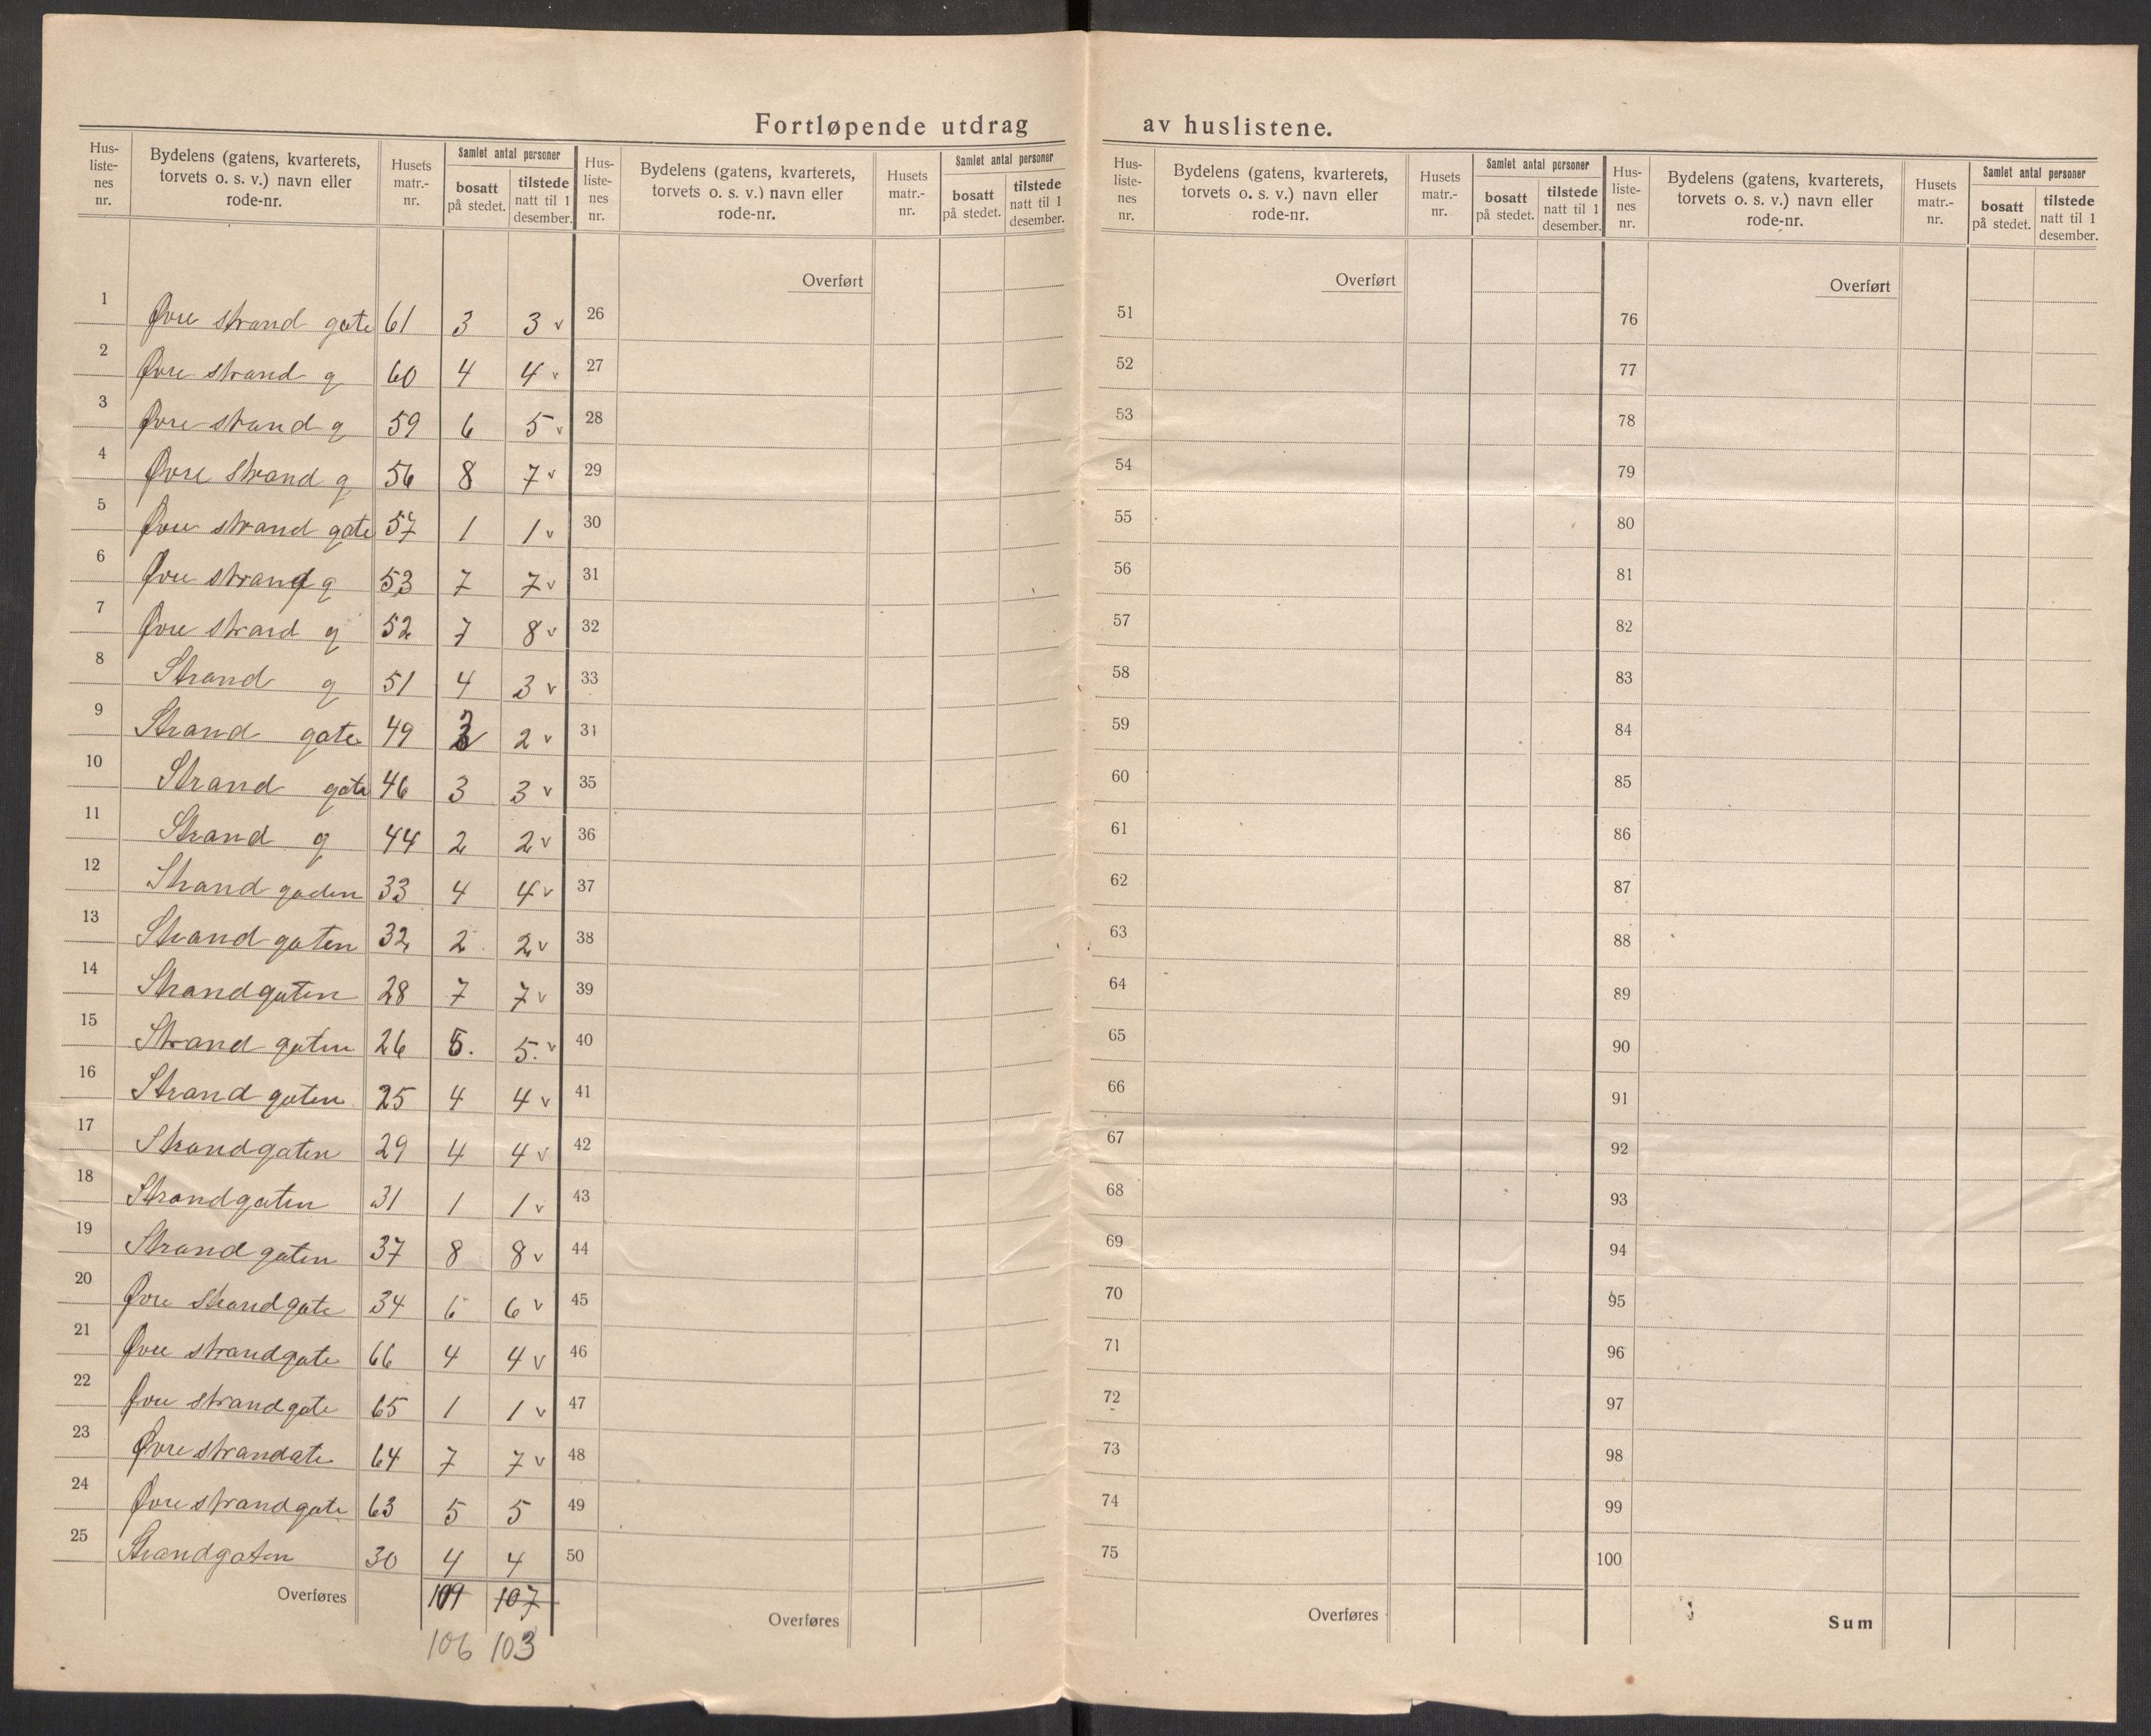 Fortløpende utdrag av huslistene.
Hus-listenes nr. | Bydelens (gatens, kvarterets, torvets o. s. v.) navn eller rode-nr. | Husets matr.-nr. | Samlet antal personer | bosatt på stedet. | tilstede natt til 1 desember.
1 Øvre strand gate 61 3 3 v
2 Øvre strand g 60 4 4 v
3 Øvre strand g 59 6 5 v
4 Øvre strand g 56 8 7 v
5 Øvre strand gate 57 1 1 v
6 Øvre strand g 53 7 7 v
7 Øvre strand g 52 7 8 v
8 Strand g 51 4 3 v
9 Strand gate 49 3 2 v
10 Strand gate 46 3 3 v
11 Strand g 44 2 2 v
12 Strand gaden 33 4 4 v
13 Strand gaten 32 2 2 v
14 Strandgaten 28 7 7 v
15 Strand gaten 26 5. 5. v
16 Strand gaten 25 4 4 v
17 Strandgaten 29 4 4 v
18 Strandgaten 31 1 1 v
19 Strandgaten 37 8 8 v
20 Øvre Strandgate 34 6 6 v
21 Øvre strandgate 66 4 4 v
22 Øvre strandgate 65 1 1 v
23 Øvre strandate 64 7 7 v
24 Øvre strandgate 63 5 5
25 Strandgaten 30 4 4
Overføres 109 107
106 103
Hus-listenes nr. | Bydelens (gatens, kvarterets, torvets o. s. v.) navn eller rode-nr. | Husets matr.-nr. | Samlet antal personer | bosatt på stedet. | tilstede natt til 1 desember.
Overført
26
27
28
29
30
31
32
33
34
35
36
37
38
39
40
41
42
43
44
45
46
47
48
49
50
Overføres
Hus-listenes nr. | Bydelens (gatens, kvarterets, torvets o. s. v.) navn eller rode-nr. | Husets matr.-nr. | Samlet antal personer | bosatt på stedet. | tilstede natt til 1 desember.
Overført
51
52
53
54
55
56
57
58
59
60
61
62
63
64
65
66
67
68
69
70
71
72
73
74
75
Overføres
Hus-listenes nr. | Bydelens (gatens, kvarterets, torvets o. s. v.) navn eller rode-nr. | Husets matr.-nr. | Samlet antal personer | bosatt på stedet. | tilstede natt til 1 desember.
Overført
76
77
78
79
80
81
82
83
84
85
86
87
88
89
90
91
92
93
94
95
96
97
98
99
100
Sum